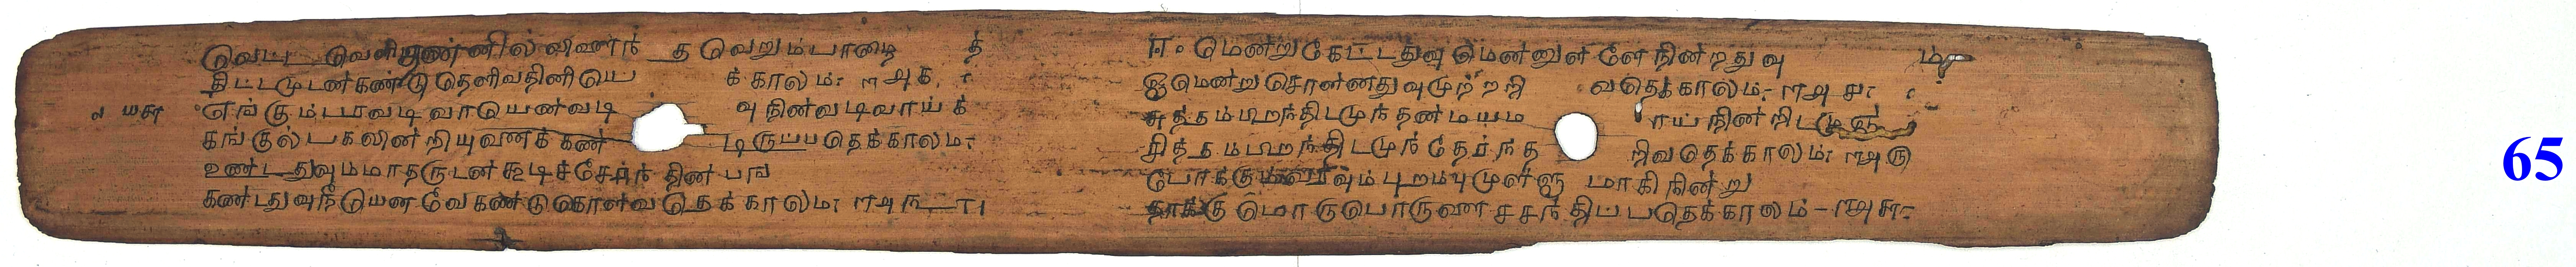 வெட்ட வெளி தன்னில் விளைந் த வெறும்பாழை த்
திட்டமுடன் கண்டு தெளிவதினி யெ க்காலம்: ௱அக
௯ யசா எங்கும் பரவடி வாயென்வடி வு நின்வடிவாய்க்
கங்குல் பகலின்றியுனைக் கண் டிருப்பதெக்காலம்:
உண்டதுவும் மாதருடன் கூடிச் சேர்ந் தின்பங்
கண்டதுவு நீயெனவே கண்டு கொள்வ தெக்காலம்:
ஈ௦ மென்று கேட்டதுவு மென்னுள்ளே நின்றதுவு ம்
ஓமென்று சொன்னதுவுமுற்றறி வதெக்காலம்:
சத்தம் பிறந்திடமுந் தண்மயம ாய் நின்றிடமுஞ்
சித்தம் பிறந்திடமுந் தேர்ந்த றிவதெக்காலம்: ௱அரு
போக்கும்வரவும் புறம்புமுள்ளு மாகி நின்று
தாக்கு மொருபொருளை சந்திப் பதெக்காலம்
65